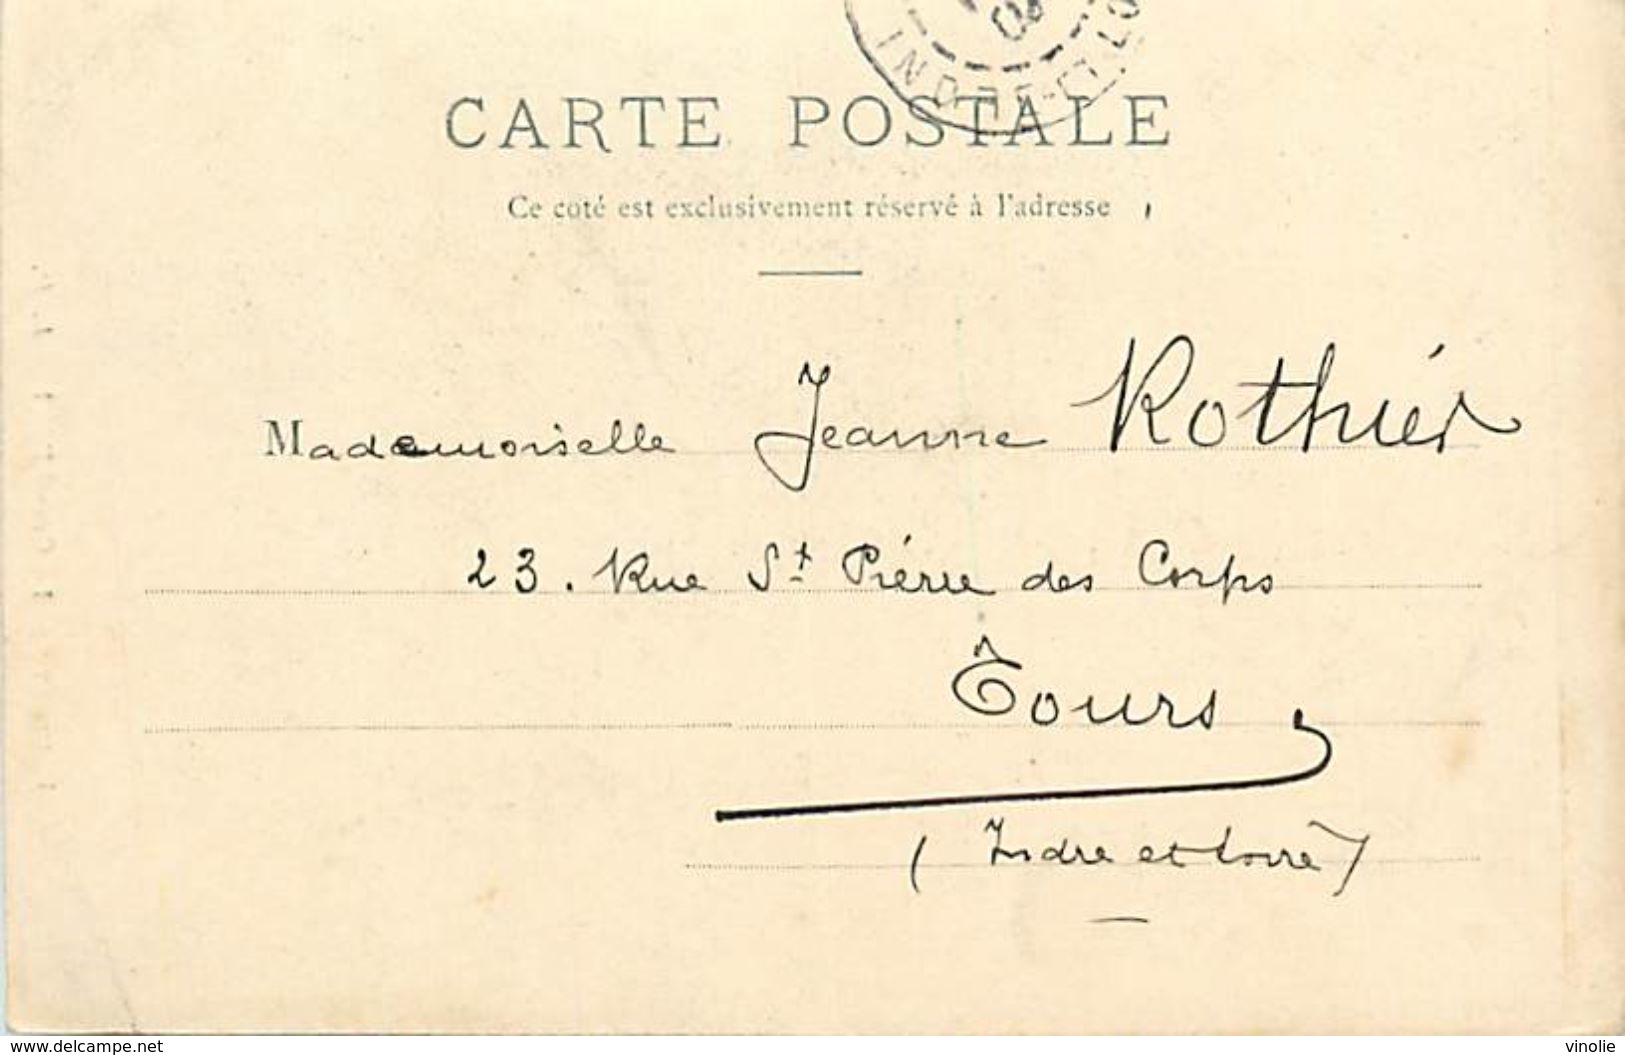 INDRE-ET-LO
CARTE POSTALE
Ce coté est exclusivement réservé à l'adresse
Mademoiselle Jeanne Rothier
23. Rue St Pierre des Corps
Tours
(Indre et Loire)
www.delcampe.net
vinolie